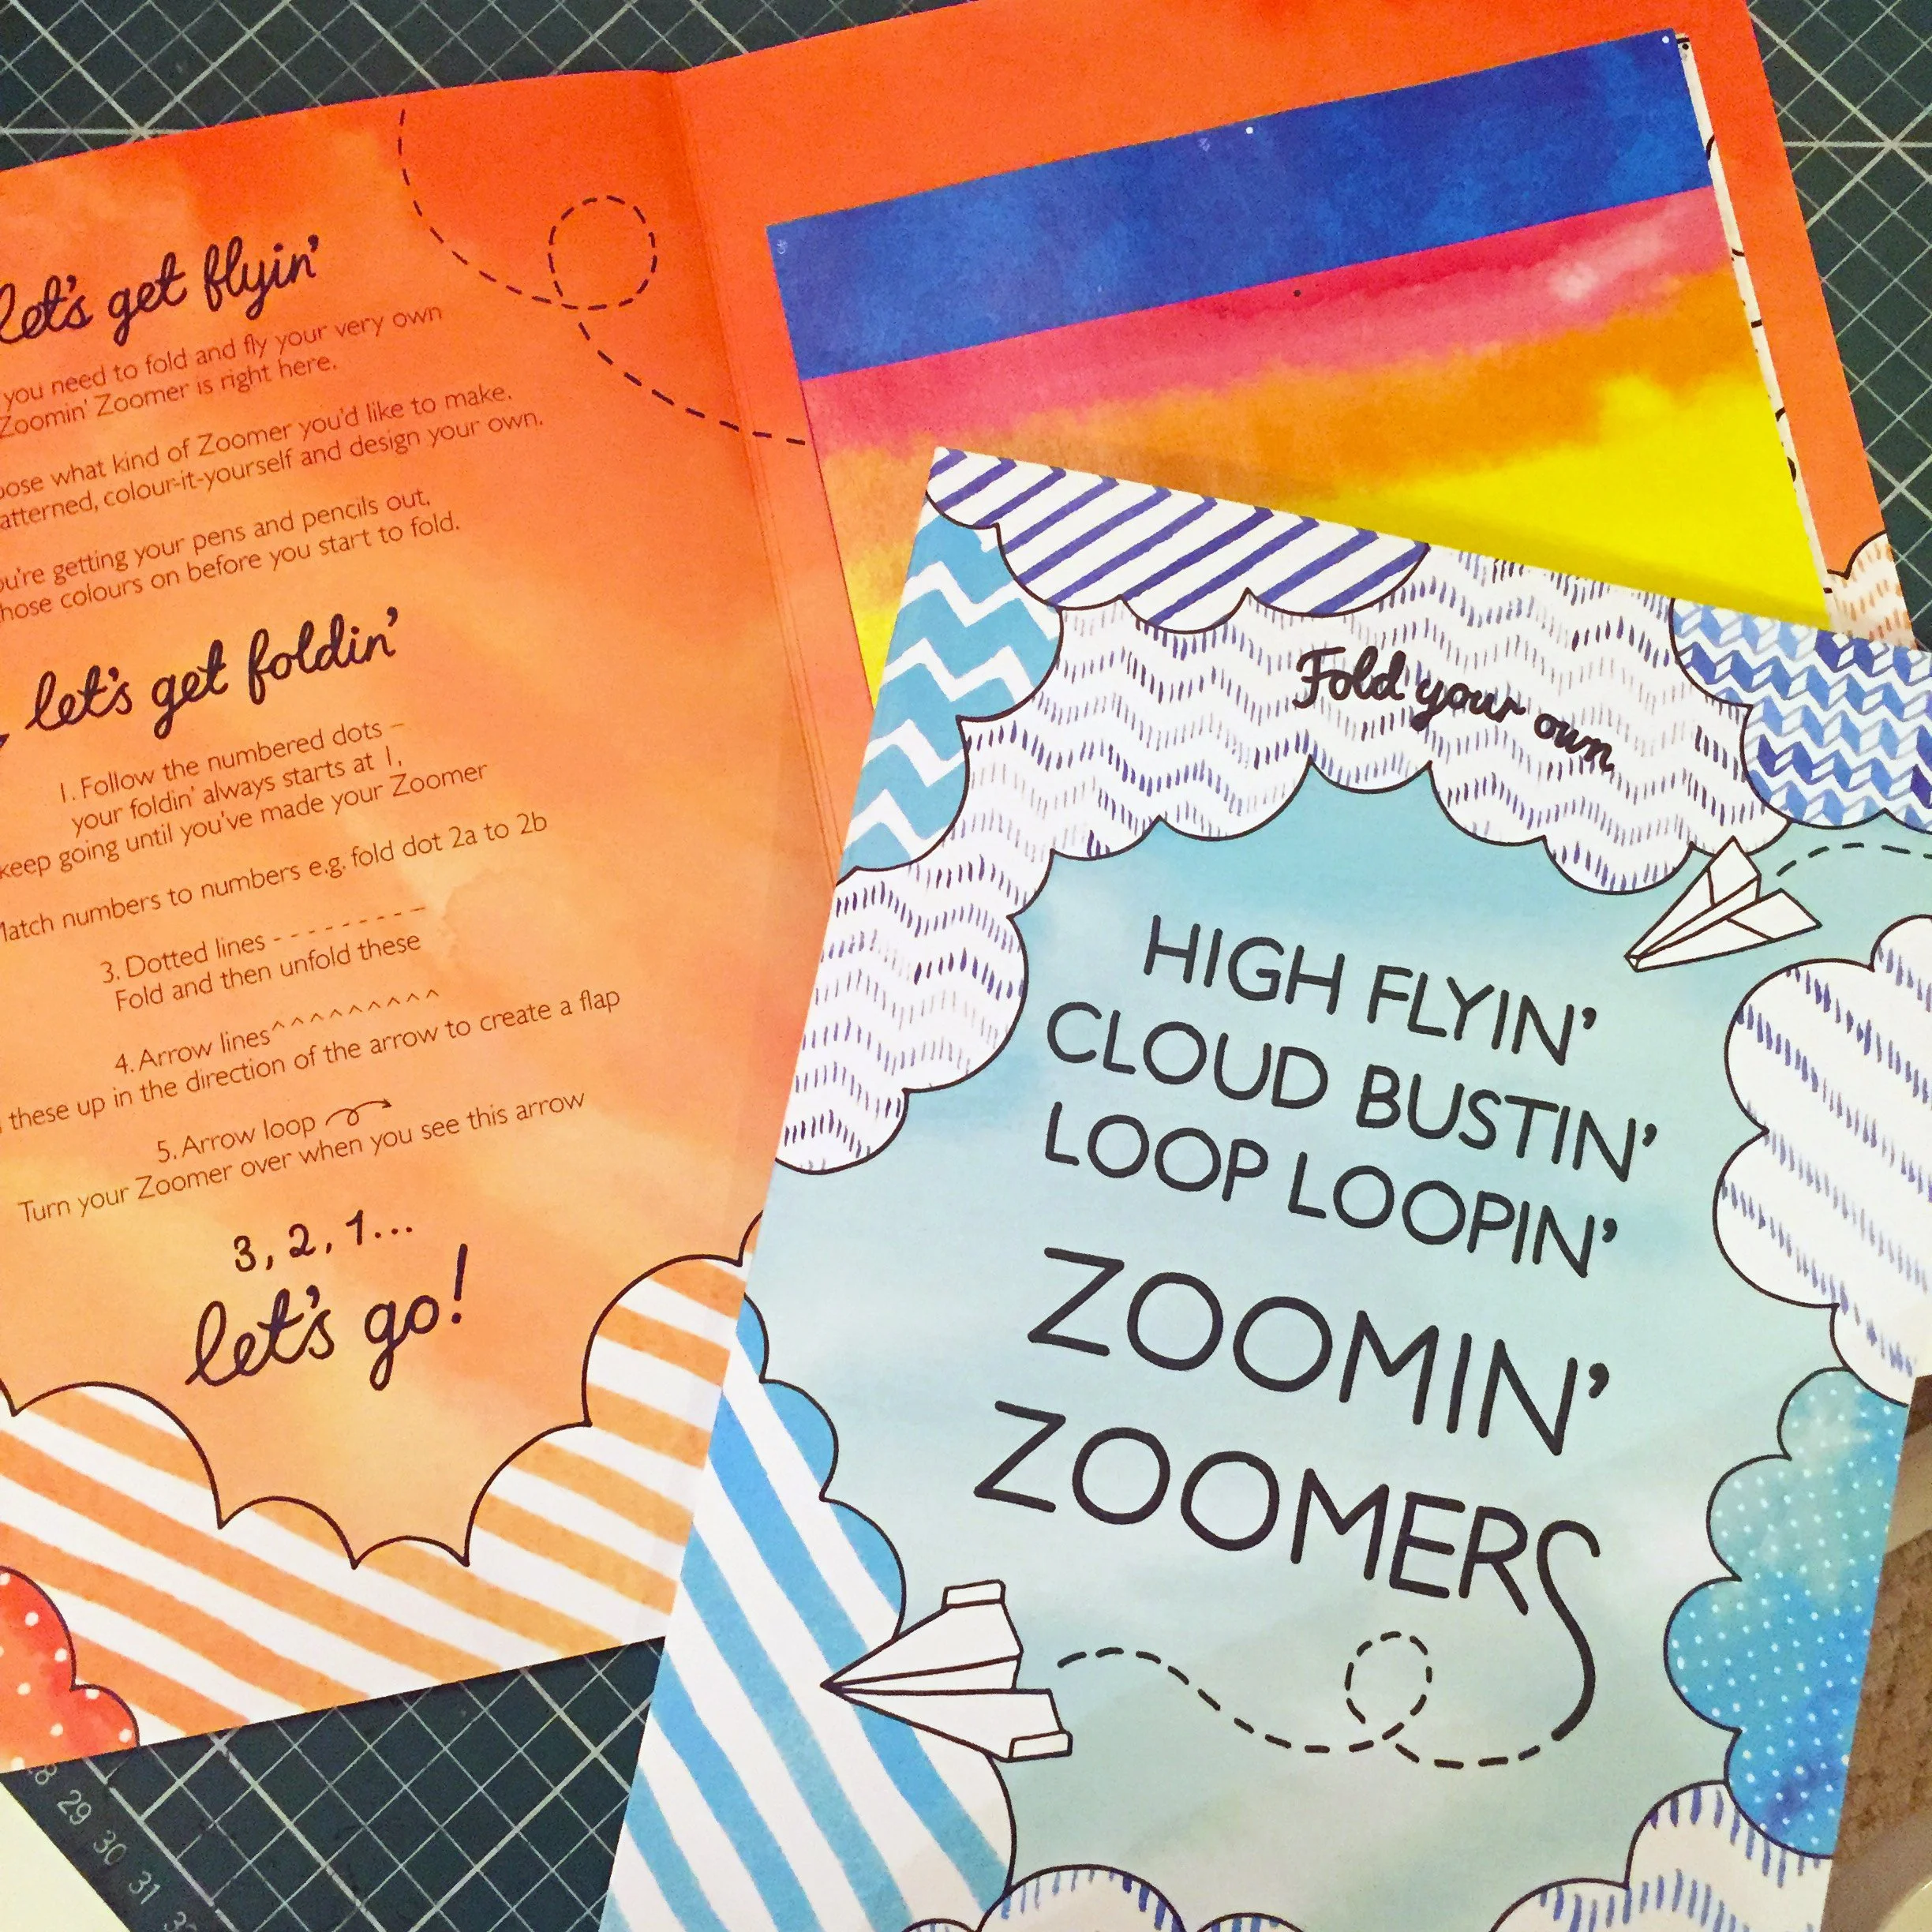 let's get flyin'
you need to fold and fly your very own
Zoomin' Zoomer is right here.
what kind of Zoomer you'd like to make.
colour-it-yourself and design your own.
getting your pens and pencils out,
colours on before you start to fold.
let's get foldin'
1. Follow the numbered dots –
your foldin' always starts at 1,
keep going until you've made your Zoomer
numbers to numbers e.g. fold dot 2a to 2b
3. Dotted lines - - - - - - - - -
Fold and then unfold these
4. Arrow lines^^^^^^^^^
these up in the direction of the arrow to create a flap
5. Arrow loop
Turn your Zoomer over when you see this arrow
3, 2, 1...
let's go!
Fold your own
HIGH FLYIN'
CLOUD BUSTIN'
LOOP LOOPIN'
ZOOMIN'
ZOOMERS
28 29 30 31